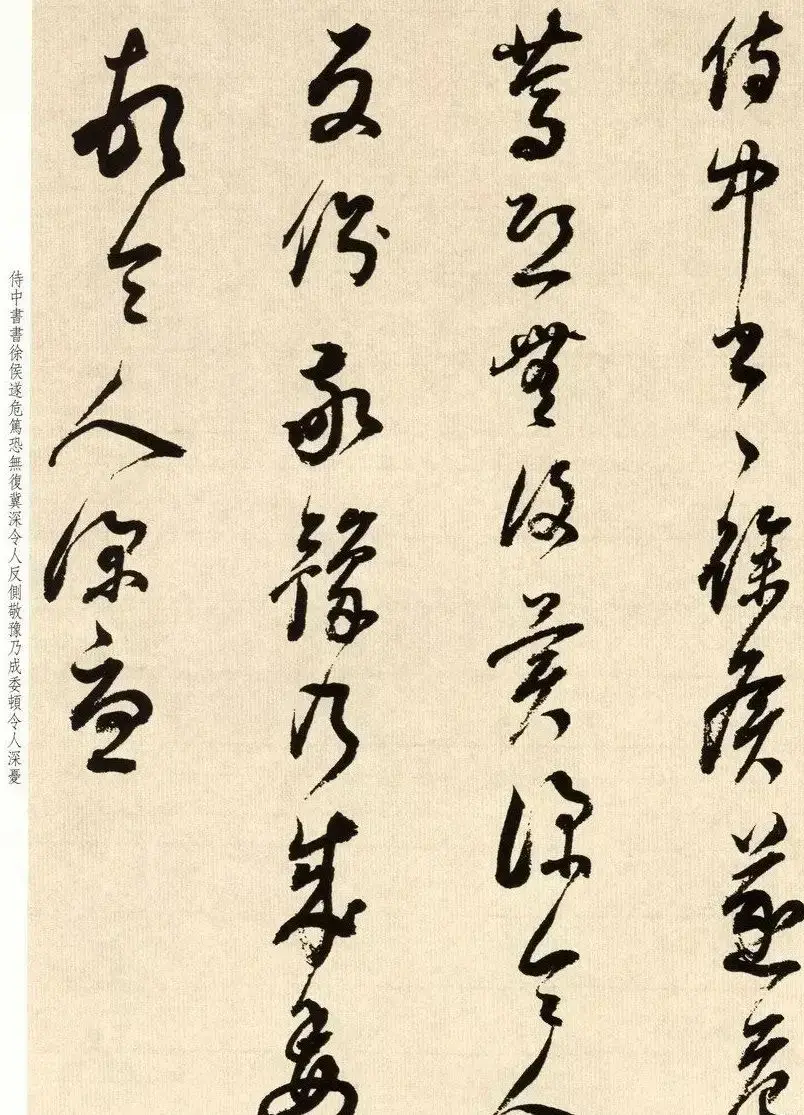 侍中書〻徐侯遂危
篤恐無復冀深令人
反側敬豫乃成委
頓令人深憂
侍中書書徐侯遂危篤恐無復冀深令人反側敬豫乃成委頓令人深憂